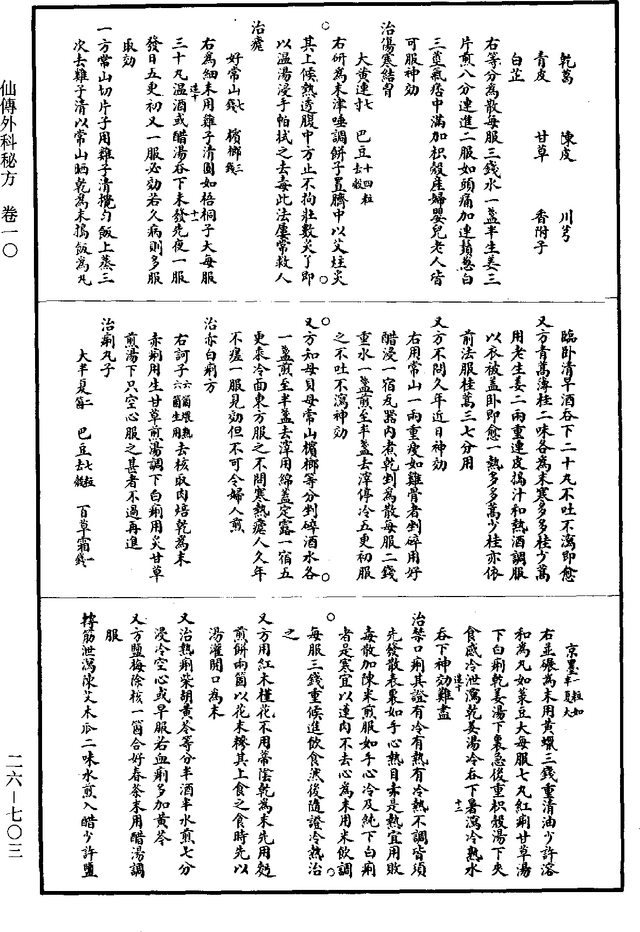 乾葛 陳皮 川芎
青皮 甘草 香附子
白芷
右等分為散每服三錢水一盞半生姜三
片煎八分連進二服如頭痛加連鬚葱白
三莖氣痞中滿加枳殼產婦嬰兒老人皆
可服神効
治傷寒結胷
大黃連七寸 巴豆十四粒去殼
右研為末津唾調餅子置臍中以艾炷灸
其上候熱透腹中方止不拘壯數灸了即
以温湯浸手帕拭之去毒此法屢常救人
治瘧
好常山七錢 檳榔三錢
右為細末用雞子清圓如梧桐子大每服
三十丸温酒或醋湯吞下未發先夜一服
發日五更初又一服必効若久病則多服
取効
一方常山切片子用雞子清攪勻飯上蒸三
次去雞子清以常山晒乾為末搗飯為丸
臨卧清早酒吞下二十丸不吐不瀉即愈
又方青蒿薄桂二味各為末寒多多桂少蒿
用老生姜二兩重連皮搗汁和熱酒調服
以衣被蓋卧即愈一熱多多蒿少桂亦依
前法服桂蒿三七分用
又方不問久年近日神効
右用常山一兩重瘦如雞骨者剉碎用好
醋浸一宿瓦器内煮乾剉為散每服二錢
重水一盞煎至半盞去滓停冷五更初服
之不吐不瀉神効
又方知母貝母常山檳榔等分剉碎酒水各
一盞煎至半盞去滓用綿蓋定露一宿五
更朿冷面東方服之不問寒熱瘧人久年
不瘥一服見効但不可令婦人煎
治赤白痢方
右訶子六箇煨熟六箇生用去核取肉焙乾為末
赤痢用生甘草煎湯調下白痢用炙甘草
煎湯下只空心服之甚者不過再進
治痢丸子
大半夏一箇 巴豆七粒去殼 百草霜一錢
京墨一粒如半夏大
右並碾為末用黃蠟三錢重清油少許溶
和為丸如菉豆大每服七丸紅痢甘草湯
下白痢乾姜湯下裏急後重枳殼湯下夾
食感冷泄瀉乾姜湯冷吞下暑瀉冷熱水
吞下神効難盡
治禁口痢其證有冷有熱有冷熱不調皆須
先發散表裏如手心熱目赤是熱宜用敗
毒散加陳米煎服如手心冷及純下白痢
者是寒宜以蓮肉不去心為末用米飲調
每服三錢重候進飲食然後隨證冷熱治
之
又方用紅木槿花不用蒂陰乾為末先用麪
煎餅兩箇以花末糝其上食之食時先以
湯灌開口為末
又治熱痢柴胡黃芩等分半酒半水煎七分
浸冷空心或早服若血痢多加黃芩
又方鹽梅除核一箇合好春茶末用醋湯調
服
轉筋泄瀉陳艾木瓜二味水煎入醋少許鹽
仙傳外科秘方 卷一〇
二六—七〇三